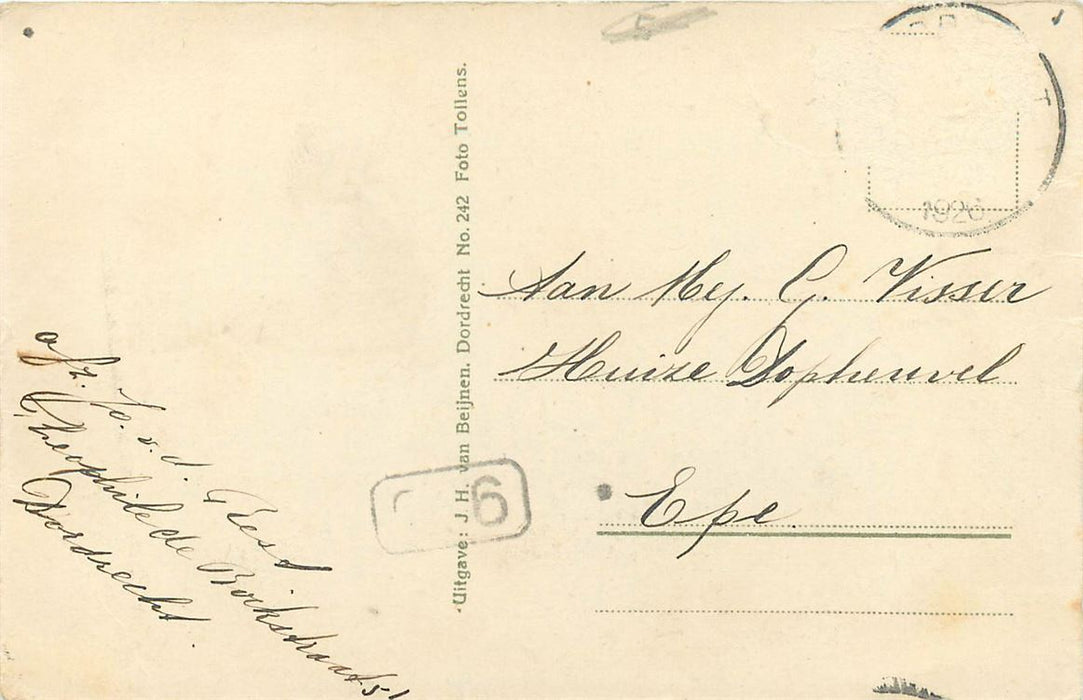 afz. Jo. v. d. Geest
Theophile de Bockstraat 51
Dordrecht.
Uitgave: J. H. van Beijnen. Dordrecht No. 242 Foto Tollens.
5
1926
Aan Mej. G. Visser
Huize Dopheuvel
Epe.
6